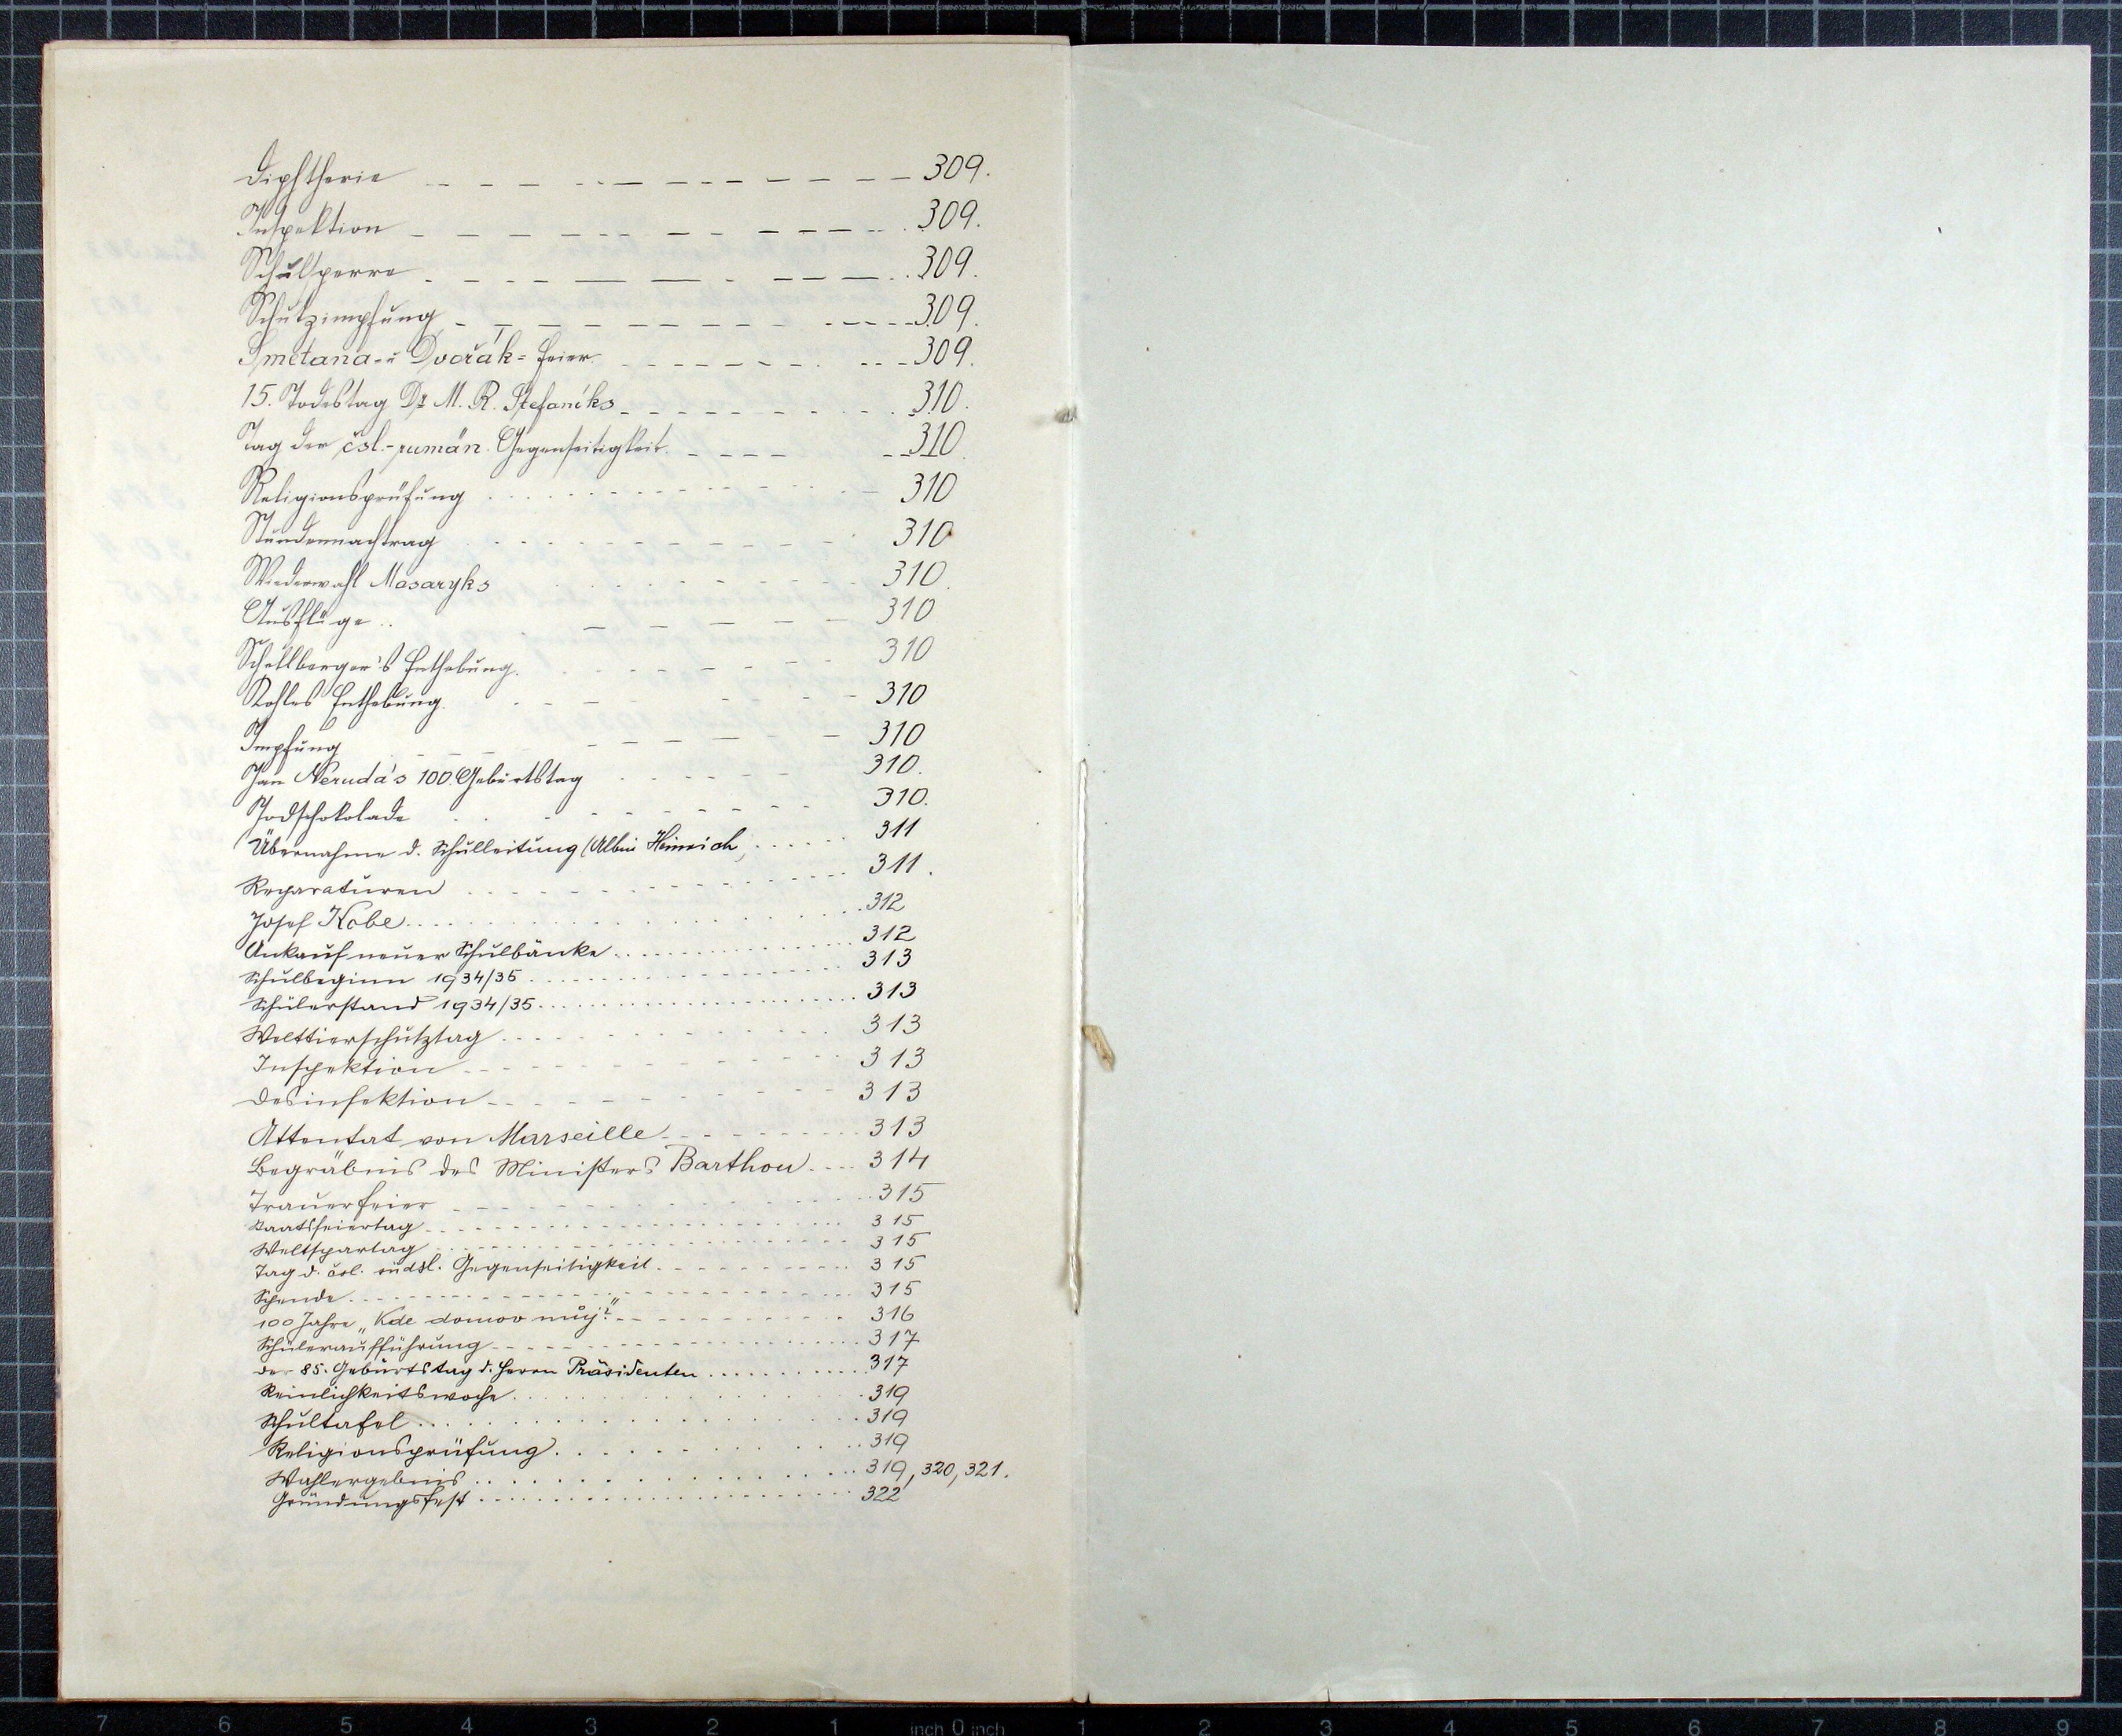 Diphtherie 309.
Inspektion 309.
Schulsperre 309.
Schutzimpfung 309.
Smetana- u Dvořák-Feier 309.
15. Todestag Dr M. R. Štefaniks 310.
Tag der čsl.-rumän. Gegenseitigkeit 310.
Religionsprüfung 310
Stundennachtrag 310
Wiederwahl Masaryks 310.
Ausflüge 310
Schellberger's Enthebung. 310
Enthebung. 310
Impfung 310
Jan Neruda's 100. Geburtstag 310.
Jodschokolade 310.
Übernahme d. Schulleitung (Albin Heinrich) 311
Reparaturen 311.
Josef Kobe 312
Ankauf neuer Schulbänke 312
Schulbeginn 1934/35 313
Schülerstand 1934/35 313
Welttierschutztag 313
Inspektion 313
Desinfektion 313
Attentat von Marseille 313
Begräbnis des Ministers Barthou 314
Trauerfeier 315
Staatsfeiertag 315
Weltspartag 315
Tag d. čsl. südsl. Gegenseitigkeit 315
Spende 315
100 Jahre „Kde domov můj?" 316
Schüleraufführung 317
der 85. Geburtstag d. Herrn Präsidenten 317
Reinlichkeitswoche 319
Schultafel 319
Religionsprüfung 319
Wahlergebnis 319, 320, 321.
Gründungsfest 322
7 6 5 4 3 2 1 inch 0 inch 1 2 3 4 5 6 7 8 9